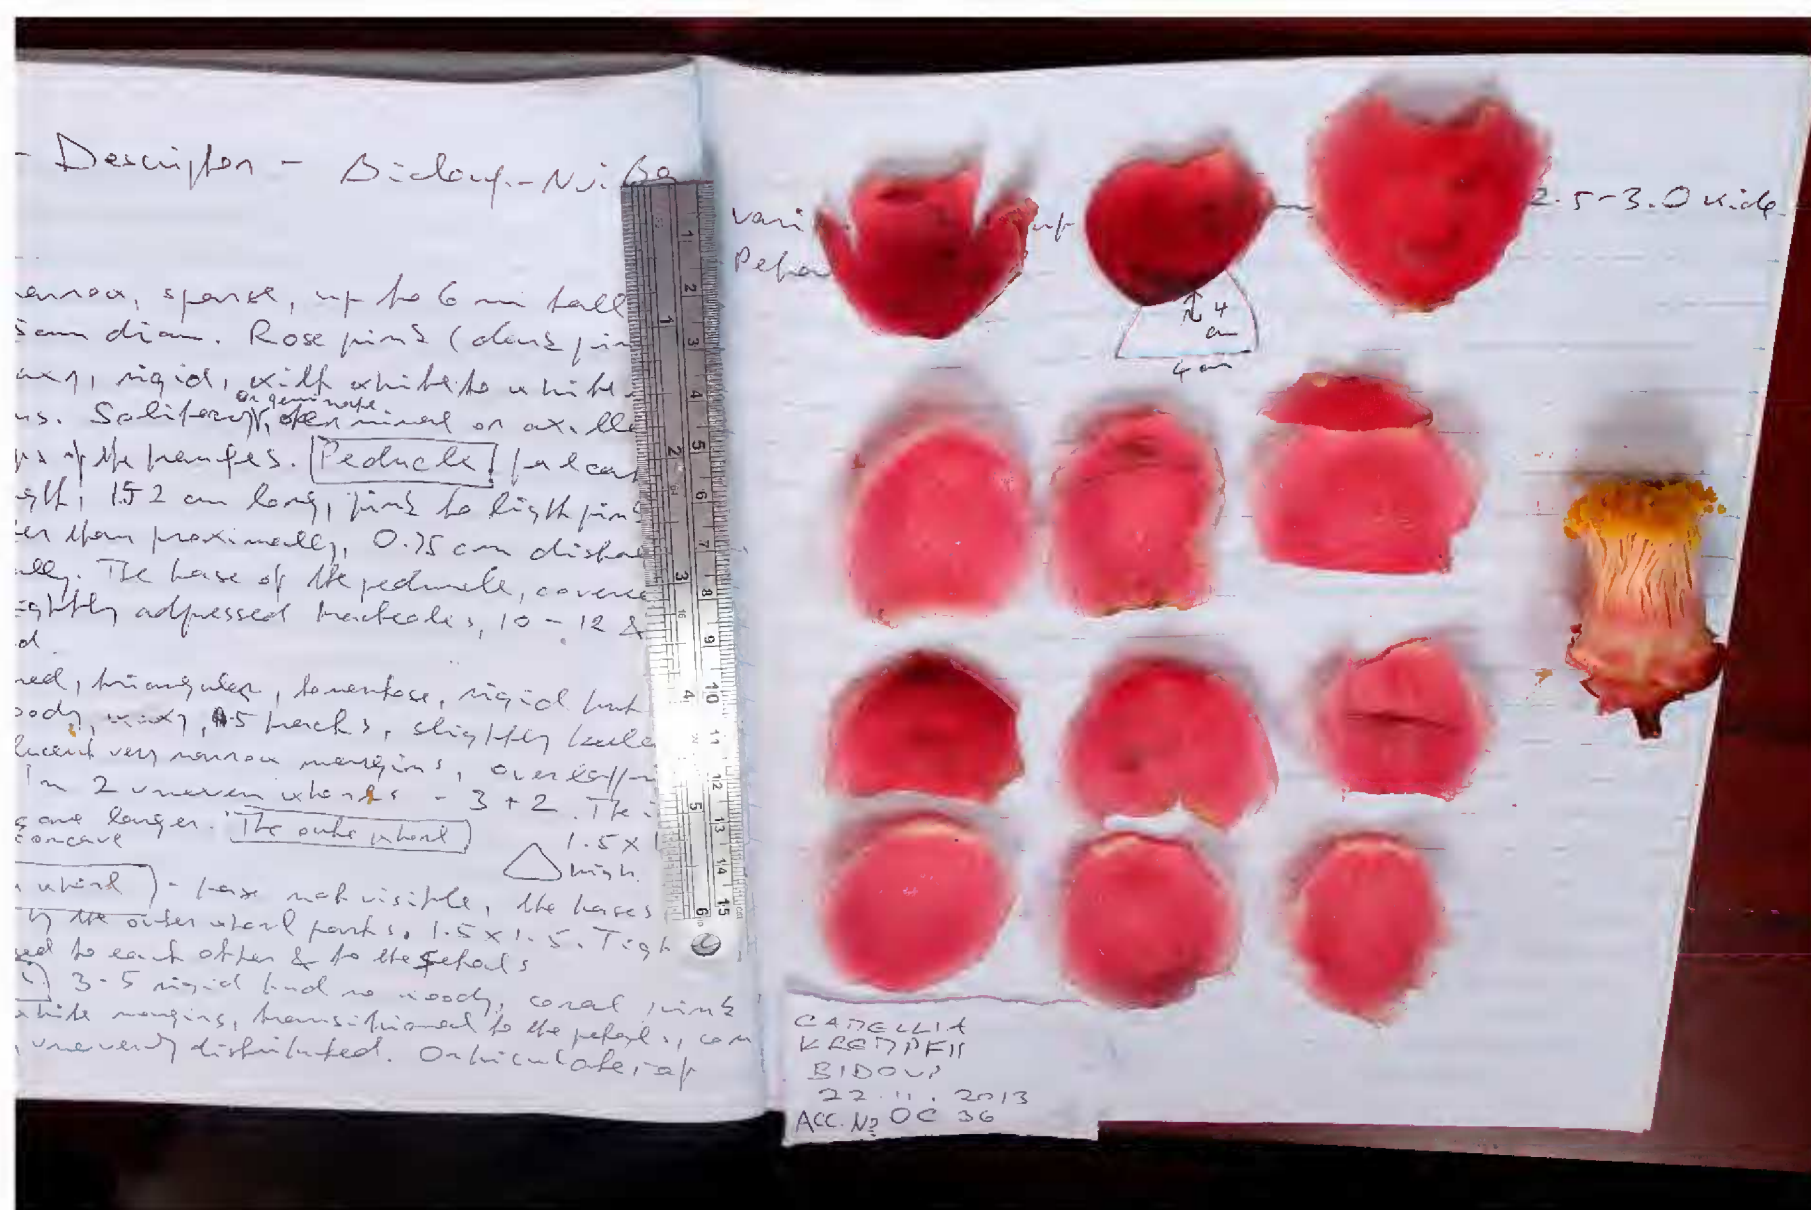 - Description - Bidoup-Nui Ba
narrow, sparse, up to 6 m tall
5 cm diam. Rose pink (dark pin
waxy, rigid, with white to white
or geminate
ns. Solitary, terminal or axilla
ps of the branches. Peduncle
gth, 1.5 2 cm long, pink to ligth pink
er than proximally, 0.75 cm distal
ally. The base of the peduncle, covere
ightly adpressed bracteoles, 10 - 12 &
d.
ned, triangular, tomentose, rigid but
oody, waxy, 5 bracts, slightly keele
lucent very narrow margins, overlapp
In 2 uneven whorls - 3 + 2. The i
s are larger. The oute whorl 1.5 x 1
concave
high.
whorl) - base not visible, the bases
by the outer whorl parts. 1.5 x 1.5. Tigh
sed to each other & to the sepals
3-5 rigid but no woody, coral pink
white margins, transitional to the petals, con
, unevenly distributed. Orbiculate, ap
1
2
3
4
5
6
7
8
9
10
11
12
13
14
15
1
2
3
4
5
6
vari up 2.5-3.0 wide
Petal
4
cm
4 cm
CAMELLIA
KREMPFII
BIDOUP
22.11.2013
ACC. No OC 36